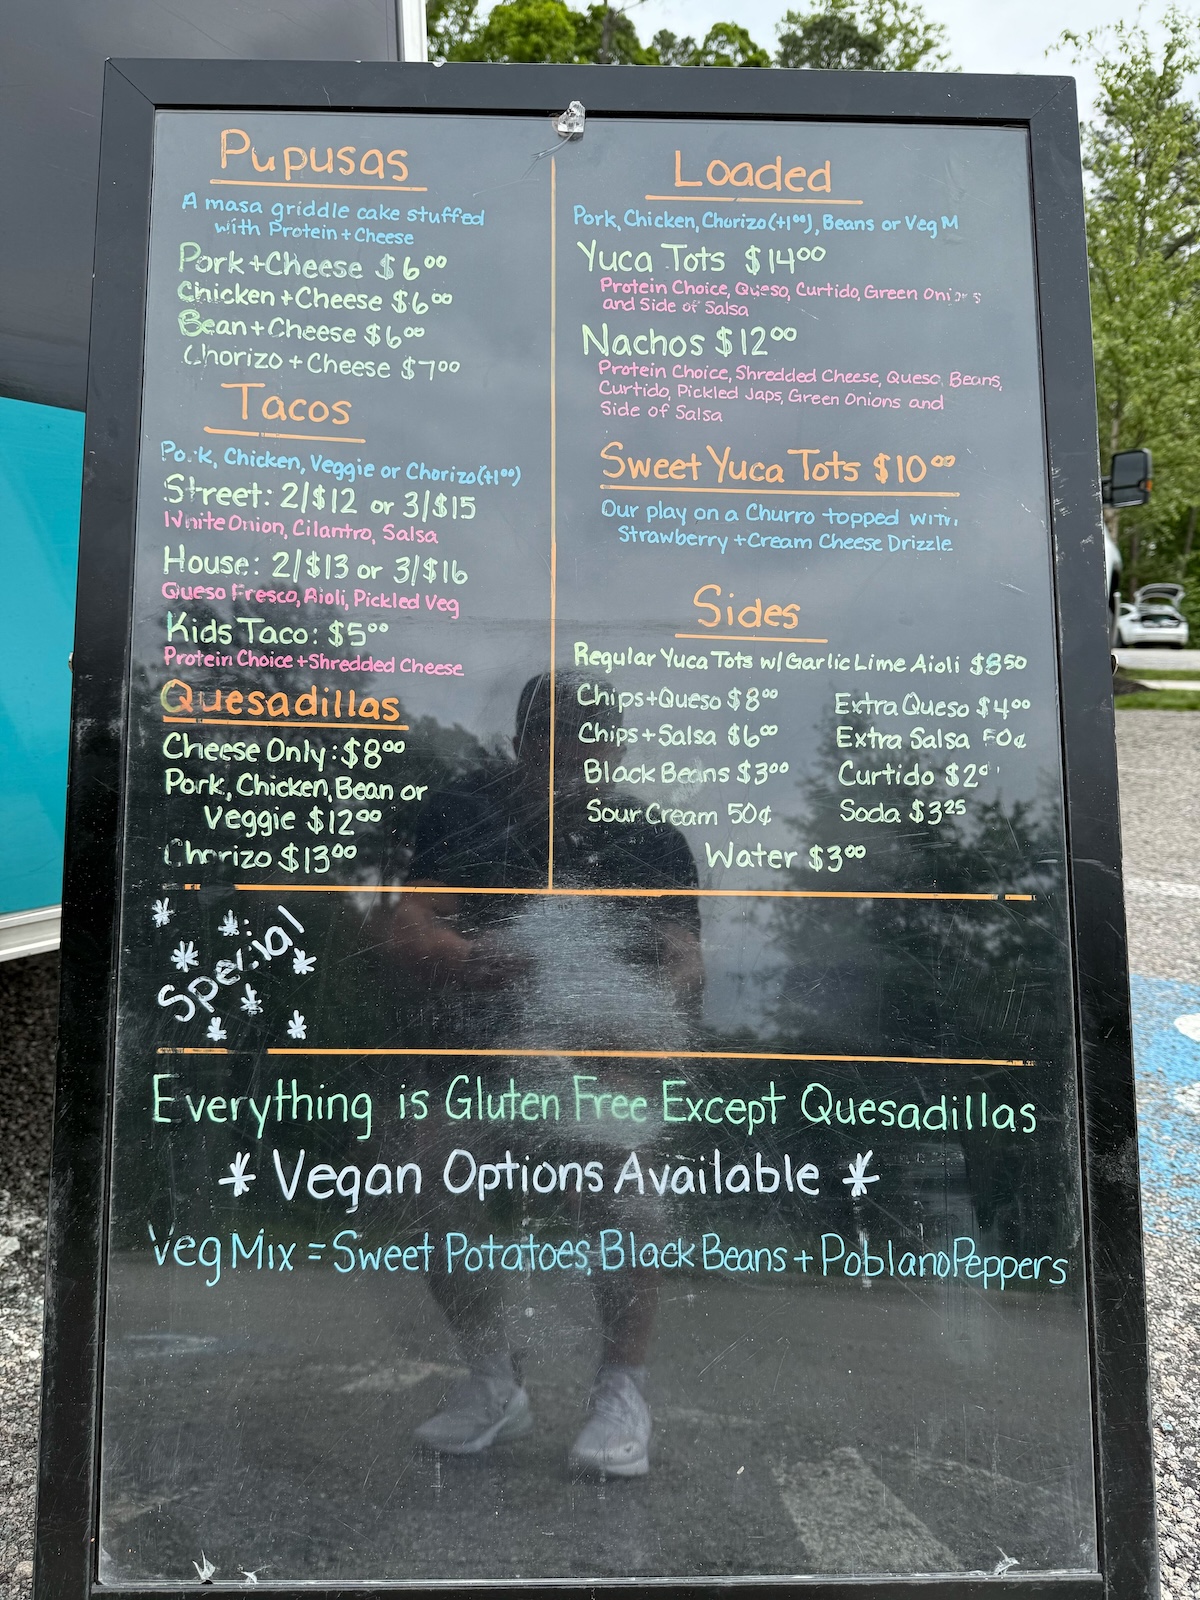 Pupusas
A masa griddle cake stuffed
with Protein + Cheese
Pork + Cheese $6.00
Chicken + Cheese $6.00
Bean + Cheese $6.00
Chorizo + Cheese $7.00
Tacos
Pork, Chicken, Veggie or Chorizo (+1.00)
Street: 2/$12 or 3/$15
White Onion, Cilantro, Salsa
House: 2/$13 or 3/$16
Queso Fresco, Aioli, Pickled Veg
Kids Taco: $5.00
Protein Choice + Shredded Cheese
Quesadillas
Cheese Only: $8.00
Pork, Chicken, Bean or
Veggie $12.00
Chorizo $13.00
Loaded
Pork, Chicken, Chorizo (+1.00), Beans or Veg M
Yuca Tots $14.00
Protein Choice, Queso, Curtido, Green Onions
and Side of Salsa
Nachos $12.00
Protein Choice, Shredded Cheese, Queso, Beans,
Curtido, Pickled Japs, Green Onions and
Side of Salsa
Sweet Yuca Tots $10.00
Our play on a Churro topped with
Strawberry + Cream Cheese Drizzle
Sides
Regular Yuca Tots w/ Garlic Lime Aioli $8.50
Chips + Queso $8.00 Extra Queso $4.00
Chips + Salsa $6.00 Extra Salsa 50¢
Black Beans $3.00 Curtido $2
Sour Cream 50¢ Soda $3.25
Water $3.00
Special
Everything is Gluten Free Except Quesadillas
* Vegan Options Available *
Veg Mix = Sweet Potatoes, Black Beans + Poblano Peppers